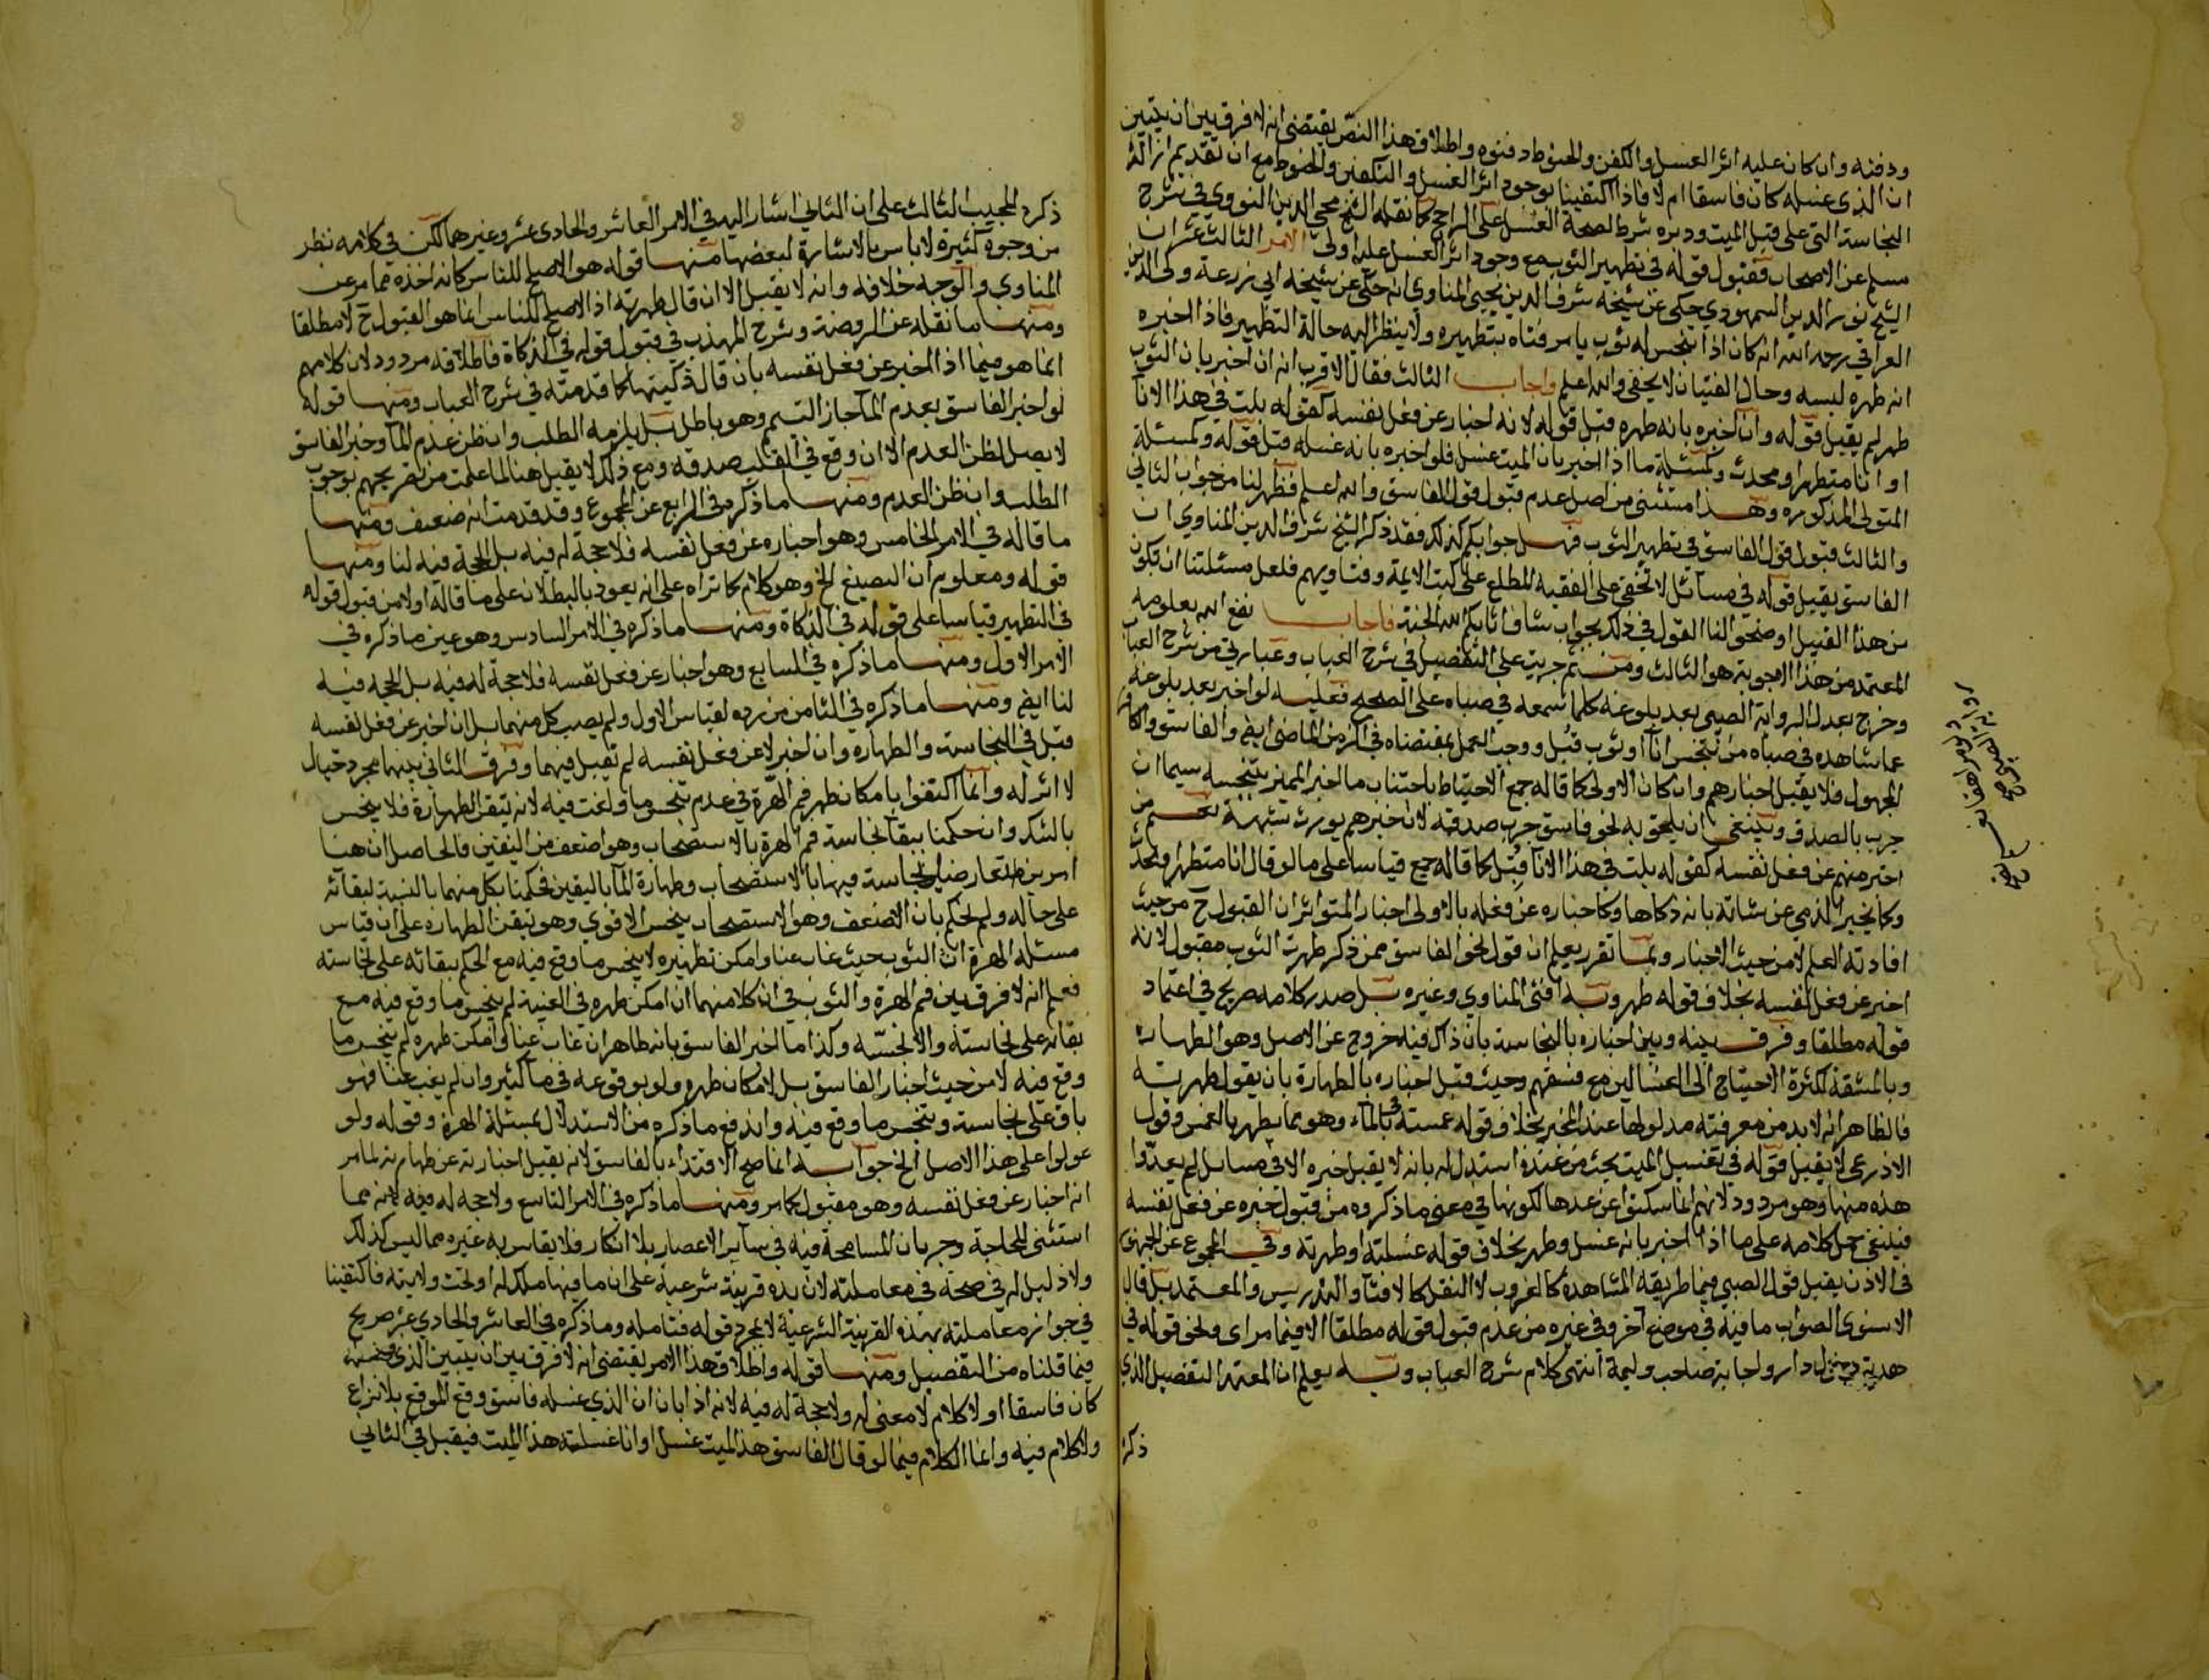 ودفنه وان كان عليه اثر الغسل والكفن والحنوط دفنوه واطلاق هذا النص يقتضى انه لا فرق بين ان يتبين
ان الذى غسله كان فاسقا ام لا فاذا اكتفينا بوجود اثر الغسل والتكفين والحنوط مع ان تقديم ازالة
النجاسة التى على قبل الميت ودبره شرط لصحة الغسل على الراجح كما نقله الشيخ محيى الدين النووى فى شرح
مسلم عن الاصحاب فقبول قوله فى تطهير الثوب مع وجود اثر الغسل عليه اولى الامر الثالث عشر ان
الشيخ نور الدين السمهودى حكى عن شيخه شرف الدين يحيى المناوى انه حكى عن شيخه ابى زرعة ولى الدين
العراقى رحمه الله انه كان اذا تنجس له ثوب يامر فتاه بتطهيره ولا ينظر اليه حالة التطهير فاذا اخبره
انه طهره لبسه وحال الفتيان لا يخفى والله اعلم واجاب الثالث فقال الاقرب انه ان اخبر بان الثوب
طهر لم يقبل قوله وان اخبره بانه طهره قبل قوله لانه اخبار عن فعل نفسه كقوله بلت فى هذا الانآ
او انا متطهر او محدث وكمسئلة ما اذا اخبر بان الميت غسل فلو اخبره بانه غسله قبل قوله وكمسئلة
المتولى المذكورة وهذا مستثنى من اصل عدم قبول قول الفاسق والله اعلم فظهر لنا من جواب الثانى
والثالث قبول قول الفاسق فى تطهير الثوب فهل جوابكم كذلك فقد ذكر الشيخ شرف الدين المناوى ان
الفاسق يقبل قوله فى مسآئل لا تخفى على الفقيه المطلع على كتب الايمة وفتاويهم فلعل مسئلتنا ان تكون
من هذا القبيل اوضحوا لنا القول فى ذلك بجواب شاف اثابكم الله الجنة فاجاب نفع الله بعلومه
المعتمد من هذه الاجوبة هو الثالث ومن ثم جريت على التفصيل فى شرح العباب وعبارتى من شرح العباب
وخرج بعدل الرواية الصبى بعد بلوغه كلما سمعه فى صباه على الصحيح فعليه لو اخبر بعد بلوغه
عما شاهده فى صباه من تنجس انآ او ثوب قبل ووجب العمل بمقتضاه فى الزمن الماضى ايض والفاسق والكافر
المجهول فلا يقبل اخبارهم وان كان الاولى كما قاله جمع الاحتياط باجتناب ما اخبر المميز بتنجسه سيما ان
جرب بالصدق وينبغى ان يلحق به نحو فاسق جرب صدقه لان خبرهم يورث شبهة نعم من
اخبر منهم عن فعل نفسه كقوله بلت فى هذا الانآ قبل كما قاله جمع قياسا على ما لو قال انا متطهر او محدث
وكما يخبر الذمى عن شاته بانه ذكاها وكاخباره عن فعله بالاولى اخبار المتواتر ان القبول ح من حيث
افادته العلم لا من حيث الاخبار وبما تقرر يعلم ان قول نحو الفاسق ممن ذكر طهرت الثوب مقبول لانه
اخبر عن فعل نفسه بخلاف قوله طهر وبه افتى المناوى وغيره بل صدر كلامه صريح فى اعتماد
قوله مطلقا وفرق بينه وبين اخباره بالنجاسة بان ذاك فيه خروج عن الاصل وهو الطهارة
وبالمشقة لكثرة الاحتياج الى الغسالين مع فسقهم وحيث قبل اخباره بالطهارة بان يقول طهرته
فالظاهر انه لا بد من معرفته مدلولها عند المخبر بخلاف قوله غمسته فى المآء وهو مما يطهر بالغمس وقول
الاذرعى لا يقبل قوله فى تغسيل الميت بحث من عنده استدل له بانه لا يقبل خبره الا فى مسائل لم يعدوا
هذه منها وهو مردود لانهم انما سكتوا عن عدها لكونها فى معنى ما ذكروه من قبول خبره عن فعل نفسه
فينبغى حمل كلامه على ما اذا اخبر بانه غسل وطهر بخلاف قوله غسلته او طهرته وفى المجموع عن الجمهور
فى الاذن يقبل قول الصبى فيما طريقه المشاهدة كالغروب لا النقل كالافتآ والتدريس والمعتمد بل قال
الاسنوى الصواب ما فيه فى موضع آخر وفى غيره من عدم قبول قوله مطلقا الا فيما مر اى ونحو قوله فى
هدية ودخول دار ولجابة صاحب وليمة انتهى كلام شرح العباب وبه يعلم ان المعتمد التفصيل الذى
ذكره
ذكره المجيب الثالث على ان الثانى اشار اليه فى الامر العاشر والحادى عشر وغيرهما لكن فى كلامه نظر
من وجوه كثيرة لا باس بالاشارة لبعضها منها قوله هو الاصلح للناس كانه اخذه مما مر عن
المناوى والوجه خلافه وانه لا يقبل الا ان قال طهرته اذ الاصلح للناس انما هو القبول ح لا مطلقا
ومنها ما نقله عن الروضة وشرح المهذب فى قبول قوله فى الذكاة فاطلاقه مردود لان كلامهم
انما هو فيما اذا اخبر عن فعل نفسه بان قال ذكيتها كما قدمته فى شرح العباب ومنها قوله
لو اخبر الفاسق بعدم المآ جاز التيمم وهو باطل بل يلزمه الطلب وان ظن عدم المآ وخبر الفاسق
لا يصل لظن العدم الا ان وقع فى القلب صدقه ومع ذلك لا يقبل هنا لما علمت من تصريحهم بوجوب
الطلب وان ظن العدم ومنها ما ذكره فى الرابع عن المجموع وقد قدمت انه ضعيف ومنها
ما قاله فى الامر الخامس وهو اخباره عن فعل نفسه فلا حجة له فيه بل الحجة فيه لنا ومنها
قوله ومعلوم ان الصبغ الخ وهو كلام كما تراه على انه يعود بالبطلان على ما قاله اولا من قبول قوله
فى التطهير قياسا على قوله فى الذكاة ومنها ما ذكره فى الامر السادس وهو عين ما ذكره فى
الامر الاول ومنها ما ذكره فى السابع وهو اخبار عن فعل نفسه فلا حجة له فيه بل الحجة فيه
لنا ايض ومنها ما ذكره فى الثامن من رده لقياس الاول ولم يصب كل منهما بل ان اخبر عن فعل نفسه
قبل فى النجاسة والطهاره وان اخبر لا عن فعل نفسه لم تقبل فيهما وفرق الثانى بينهما مجرد خيال
لا اثر له وانما اكتفوا بامكان طهر فم الهرة فى عدم تنجس ما ولغت فيه لانه تيقن الطهارة فلا ينجس
بالشك وان حكمنا ببقآ نجاسة فم الهرة بالاستصحاب وهو اضعف من اليقين فالحاصل ان هنا
امرين تعارضا نجاسة فيها بالاستصحاب وطهارة المآ باليقين فحكمنا بكل منهما بالنسبة لبقآئه
على حاله ولم نحكم بان الاضعف وهو الاستصحاب ينجس الاقوى وهو تيقن الطهارة على ان قياس
مسئلة الهرة ان الثوب حيث غاب عنا وامكن تطهيره لا ينجس ما وقع فيه مع الحكم ببقائه على نجاسته
فعلم انه لا فرق بين فم الهرة والثوب فى ان كلا منهما ان امكن طهره فى الغيبة لم ينجس ما وقع فيه مع
بقائه على نجاسته والا نجسه وكذا ما اخبر الفاسق بانه طاهر ان غاب عنا وامكن طهره لم ينجس ما
وقع فيه لا من حيث اخبار الفاسق بل لامكان طهره ولو بوقوعه فى مآ كثير وان لم يغب عنا فهو
باق على نجاسته وينجس ما وقع فيه واندفع ما ذكره من الاستدلال بمسئلة الهرة وقوله ولو
عولوا على هذا الاصل الخ جوابه انما صح الاقتداء بالفاسق لانه يقبل اخباره عن طهارته لما مر
انه اخبار عن فعل نفسه وهو مقبول كما مر ومنها ما ذكره فى الامر التاسع ولا حجة له فيه لانه مما
استثنى للحاجة وجريان المسامحة فيه فى سآير الاعصار بلا انكار فلا يقاس به غيره مما ليس كذلك
ولا دليل له فى صحة فى معاملته لان يده قرينة شرعية على ان ما فيها ملك له او تحت ولايته فاكتفينا
فى جواز معاملته بهذه القرينة الشرعية لا بمجرد قوله فتامله وما ذكره فى العاشر والحادى عشر صريح
فيما قلناه من التفصيل ومنها قوله واطلاق هذا الامر يقتضى انه لا فرق بين ان يتبين الذى غسله
كان فاسقا او لا كلام لا معنى له ولا حجة له فيه لانه اذا بان ان الذى غسله فاسق وقع الموقع بلا نزاع
ولا كلام فيه وانما الكلام فيما لو قال الفاسق هذا الميت غسل او انا غسلته هذا الميت فيقبل فى الثانى